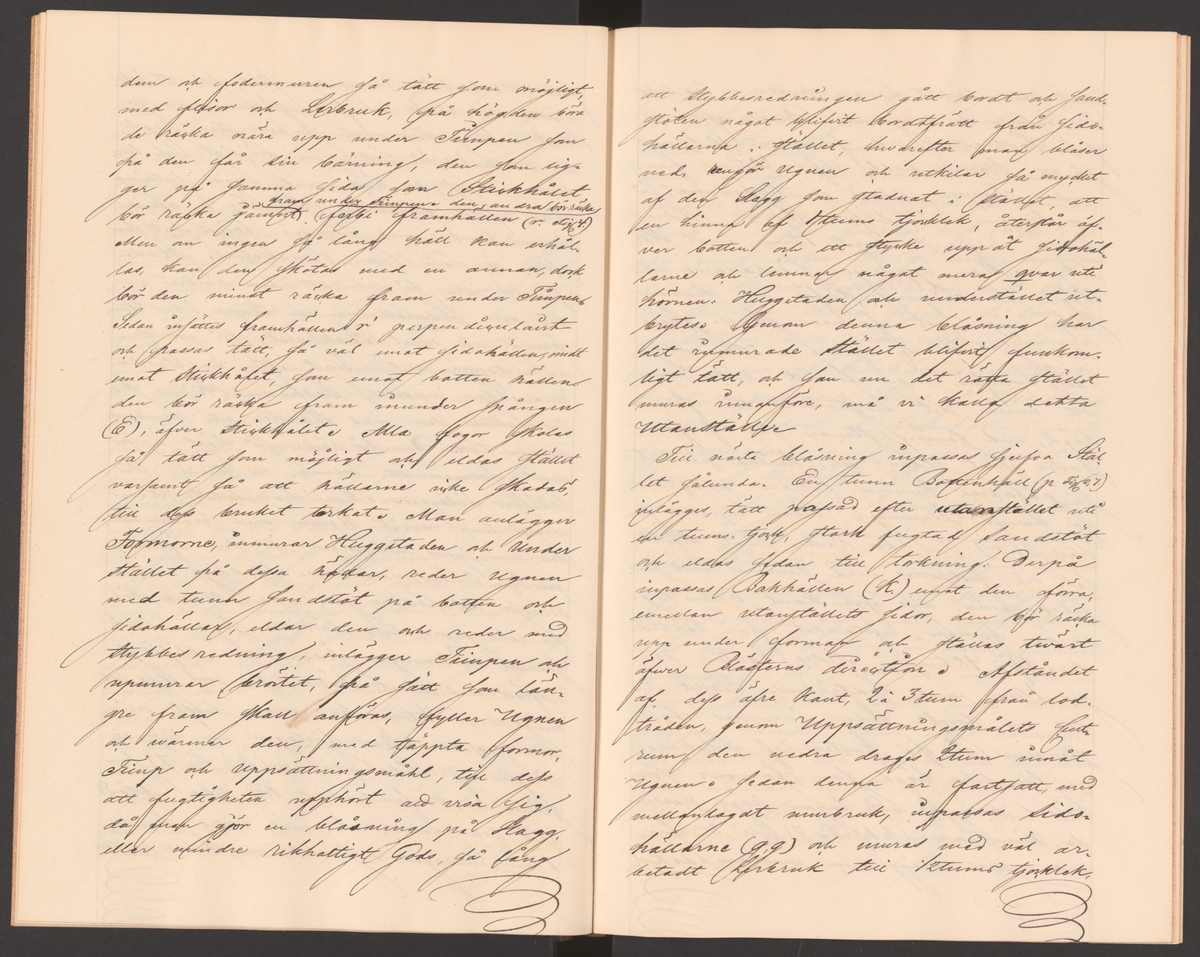 dem och fodermuren så tätt som möjligt,
med flisor och Lerbruk, på högden böra
de räcka nära upp under Timpen som
på den får sin bärning, den som lig-
ger på samma sida som Stickhålet
fram under timpen den andra bör räcka
bör räcka jämnt förbi framhällen (r. Fig. 4.)
Men om ingen så lång häll kan erhål-
las, kan den skötas med en annan, dock
bör den minst räcka fram under Timpen.
Sedan insättes framhällen r' perpendiculairt
och passas tätt, så väl emot sidohällen, emot
emot Stickhålet, som emot botten hällen
den bör räcka fram inunder stången
(E), öfver Stickhålet. Alla fogor skolas
så tätt som möjligt och eldas stället
varsamt så att hällarne icke skadas,
till dess bruket torkat. Man anlägger
Formorne, inmurar Huggstaden och Under
stället på dessa hällar, reder Ugnen
med tunn sandstöt på botten och
sidohällar, eldar den och reder med
Stybbesredning, inlägger Timpen och
upmurar bröstet, på sätt som län-
gre fram skall anföras, fyller Ugnen
och wärmer den, med täppta formor,
Timp och uppsättningsmåhl, till dess
att fugtigheten upphört att visa sig,
då man gjör en blåsning på Slagg,
eller mindre rikhaltigt Gods, så lång
att Stybbesredningen gått bordt och sand-
stöten något blifvit bordtfrätt från sido-
hällarna i Stället, hwarefter man blåser
ned, rengör Ugnen och utkilar så mycket
af den Slagg som stadnat i Stället, att
en hinna af tums tjocklek, återstår öf-
ver botten och ett stycke uppåt sidohäl-
larne och lemnar något mera qvar uti
hörnen. Huggstaden och understället ut-
brytes. Genom denna blåsning har
det inmurade Stället blifvit fullkom-
ligt tätt, och som nu det rätta stället
muras innanföre, må vi kalla detta
Utanställe.
Till nästa blåsning inpassas sjelfva Stäl-
let sålunda. En tunn Bottenhäll (p Fig 6,7)
inlägges, tätt passad efter utanstället uti
en tums tjock, stark fugtad Sandstöt
och eldas sedan till torkning. Derpå
inpassas Bakhällen (k.) emot den förra,
emellan utanställets sidor, den bör räcka
upp under forman och ställas twärt
öfver Blästerns direction. Afståndet
af dess öfre kant, 2 à 3 tum från lod-
tråden, genom Uppsättningsmålets Cent-
rum, den nedra drages 2tum innåt
Ugnen. Sedan denna är fastsatt, med
mellanlagat murbruk, inpassas Sido-
hällarne (g,g) och muras med väl ar-
betadt Lerbruk till 1/2tums tjocklek,